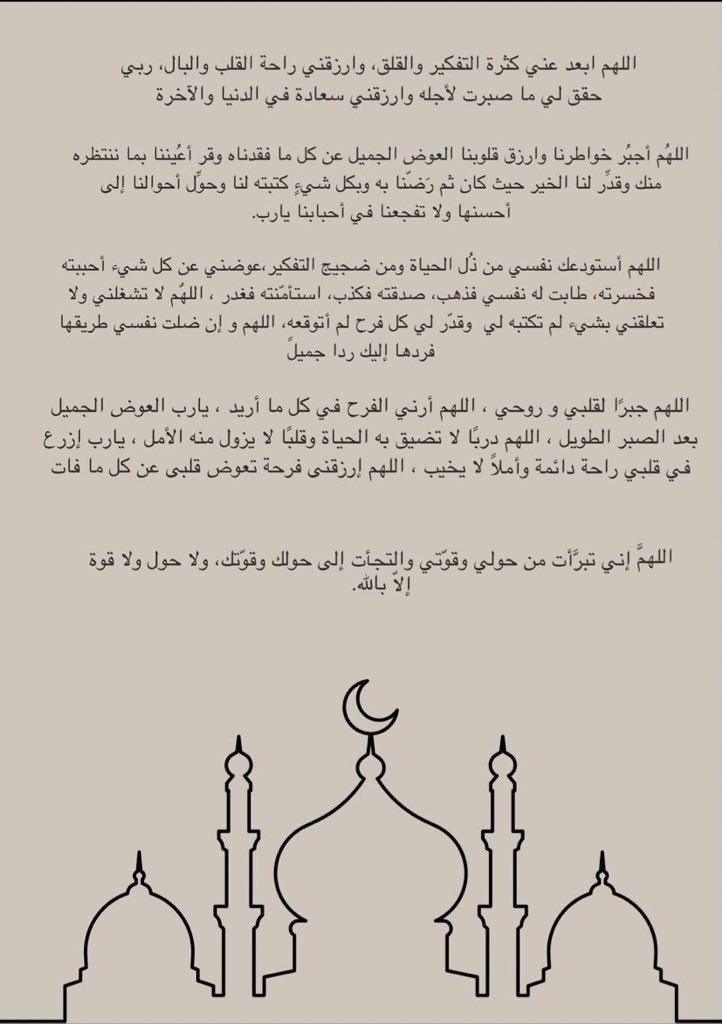 اللهم ابعد عني كثرة التفكير والقلق، وارزقني راحة القلب والبال، ربي
حقق لي ما صبرت لأجله وارزقني سعادة في الدنيا والآخرة
اللهُم أجبُر خواطرنا وارزق قلوبنا العوض الجميل عن كل ما فقدناه وقر أعُيننا بما ننتظره
منك وقدِّر لنا الخير حيث كان ثم رَضّنا به وبكل شيءٍ كتبته لنا وحوِّل أحوالنا إلى
أحسنها ولا تفجعنا في أحبابنا يارب.
اللهم أستودعك نفسي من ذُل الحياة ومن ضجيج التفكير،عوضني عن كل شيء أحببته
فخسرته، طابت له نفسي فذهب، صدقته فكذب، استأمّنته فغدر ، اللهُم لا تشغلني ولا
تعلقني بشيء لم تكتبه لي وقدّر لي كل فرح لم أتوقعه، اللهم و إن ضلت نفسي طريقها
فردها إليك ردا جميلاً
اللهم جبرًا لقلبي و روحي ، اللهم أرني الفرح في كل ما أريد ، يارب العوض الجميل
بعد الصبر الطويل ، اللهم دربًا لا تضيق به الحياة وقلبًا لا يزول منه الأمل ، يارب إزرع
في قلبي راحة دائمة وأملاً لا يخيب ، اللهم إرزقنى فرحة تعوض قلبى عن كل ما فات
اللهمَّ إني تبرَّأت من حولي وقوّتي والتجأت إلى حولك وقوّتك، ولا حول ولا قوة
إلاّ بالله.